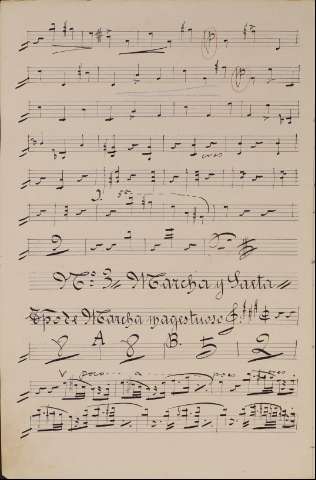 2
Nº 3 Marcha y Saeta
Tpo de Marcha magestuoso
8 A 8 B. 5 2
poco a poco